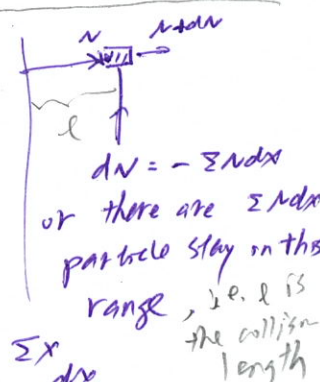 N N+dN
l
dN = - ΣNdx
or there are ΣNdx
particle stay in this
range, i.e. l is
the collision
length
Σx
dx